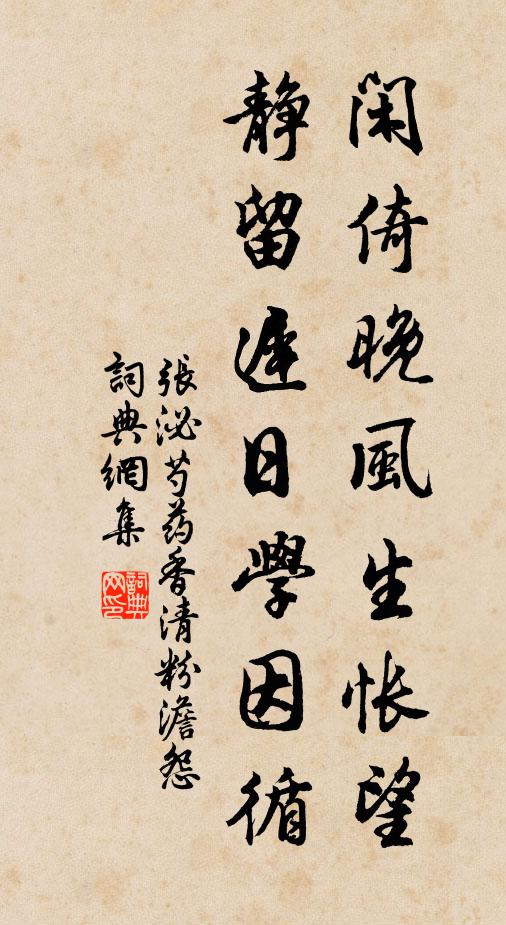 閑倚晚風生悵望
静留遲日學因循
張泌芍药香清粉澹怨
詞典網集
詞典网印